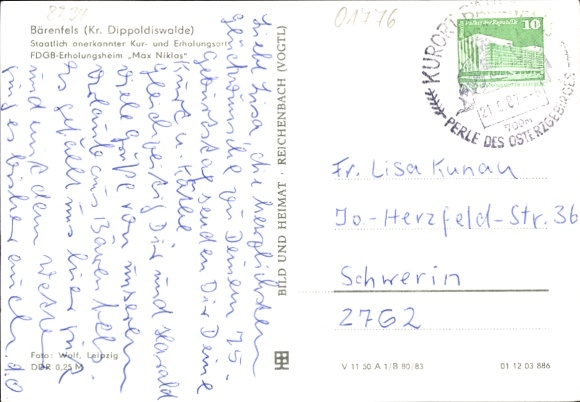 8234
01776
Bärenfels (Kr. Dippoldiswalde)
Staatlich anerkannter Kur- und Erholungsort
FDGB-Erholungsheim „Max Niklas"
Liebe Lisa, die herzlichsten
Glückwünsche zu Deinem 75.
Geburtstag senden Dir Deine
Kurt u. Käthe
Gleichzeitig Dir und Harald
viele Grüße von unserem
Urlaub aus Bärenfels.
Es gefällt uns hier gut
und mit dem Wetter
ging es bisher auch. d.O
BILD UND HEIMAT · REICHENBACH (VOGTL)
Foto: Wolf, Leipzig
DDR 0,25 M
10
KURORT
PERLE DES OSTERZGEBIRGES
Fr. Lisa Kunau
Jo-Herzfeld-Str. 36
Schwerin
2762
V 11 50 A 1/B 80/83
01 12 03 886